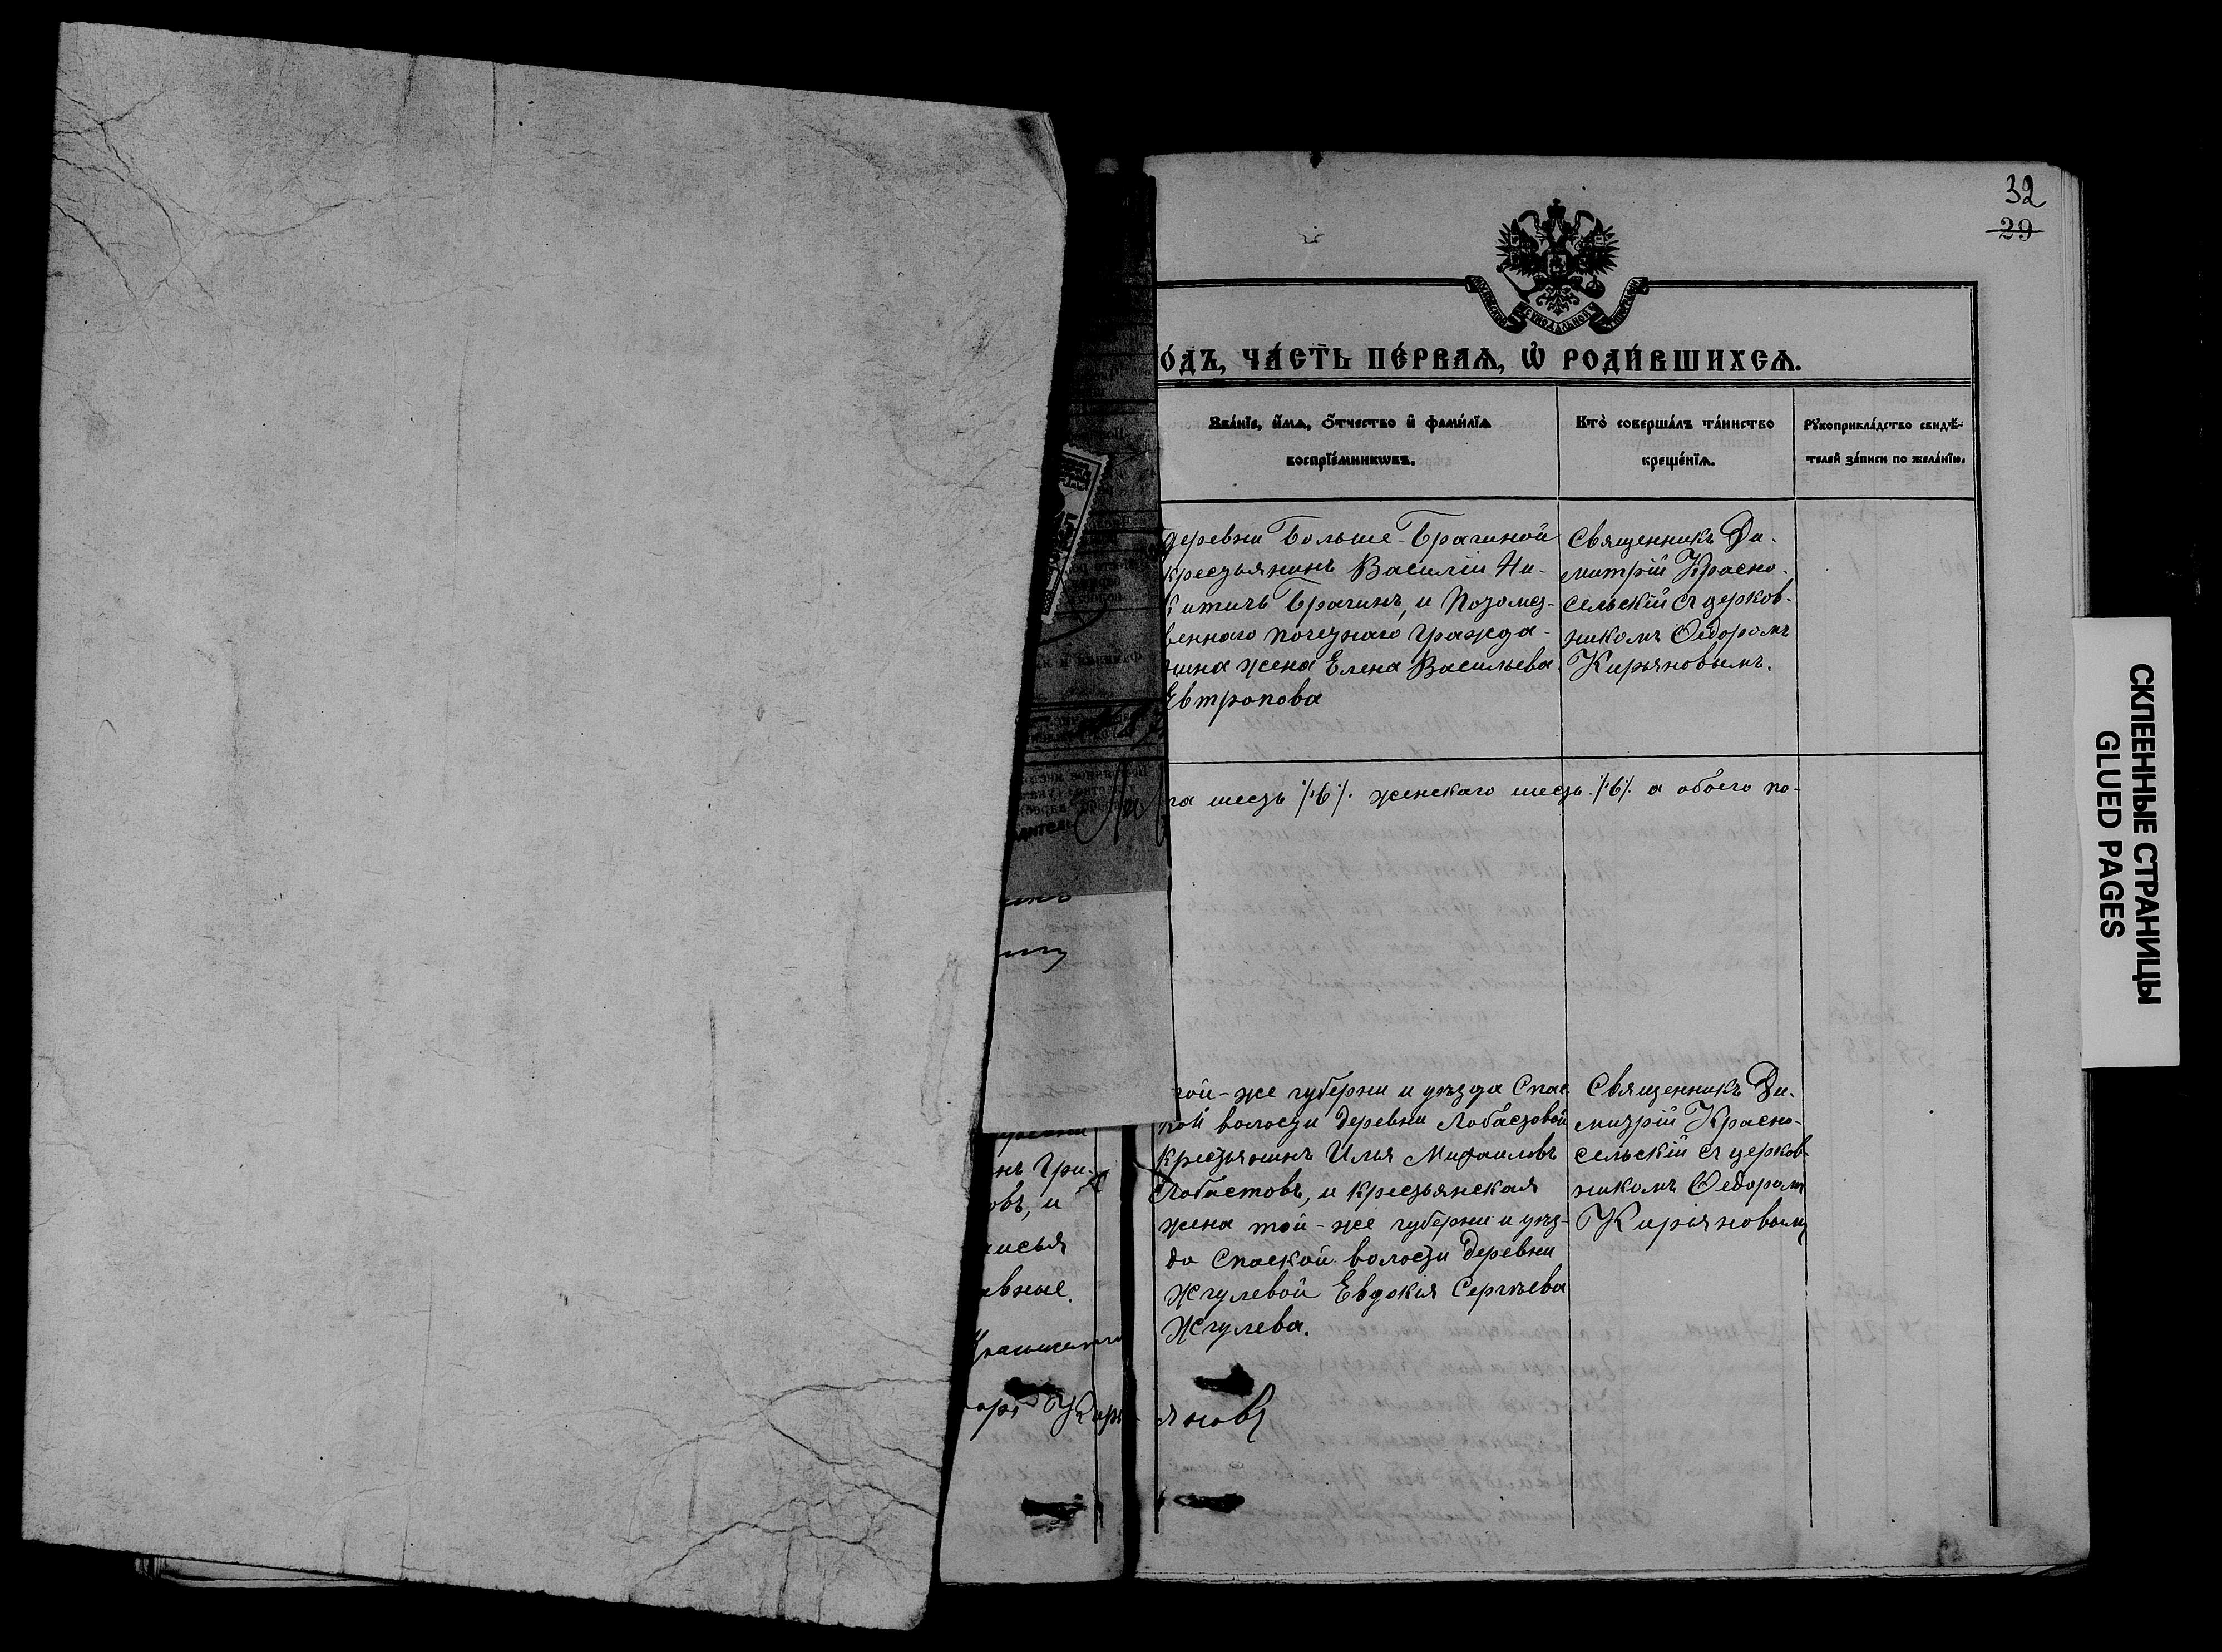 32
29
ОДЪ, ЧАСТЬ ПЕРВАѦ, Ѡ РОДИВШИХСѦ.
Званїе, имѧ, отчество и фамилїѧ
воспрїемникѡвъ.
Кто совершалъ таинство
крещенїѧ.
Рꙋкоприкладство свидѣ-
телей записи по желанїю.
деревни Больше-Брагиной
крестьянинъ Василій Ни-
китичъ Брагинъ, и Потомст-
веннаго почетнаго гражда-
нина жена Елена Васильева
Евтропова
Священникъ Ди-
митрій Красно-
сельскій съ церков-
никомъ Ѳеодоромъ
Кирьяновымъ.
га шесть ./.6./. женскаго шесть ./.6./. а обоего по-
той-же губерни и уѣзда Спас
кой волости деревни Лобастовой
крестьянинъ Илья Михаиловъ
Лобастовъ, и крестьянская
жена той-же губерни и уѣз-
да Спаской волости деревни
Жгулевой Евдокія Сергѣева
Жгулева.
Священникъ Ди-
митрій Красно-
сельскій съ церков-
никомъ Ѳеодоромъ
Киріяновымъ
нъ Гри-
овъ, и
авные.
Кирь-
яновъ
СКЛЕЕННЫЕ СТРАНИЦЫ
GLUED PAGES